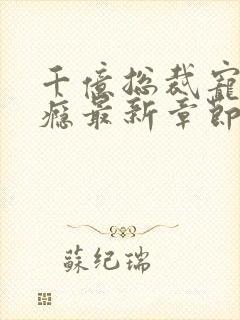 千億总裁寵
瘾最新章節
蘇纪瑞